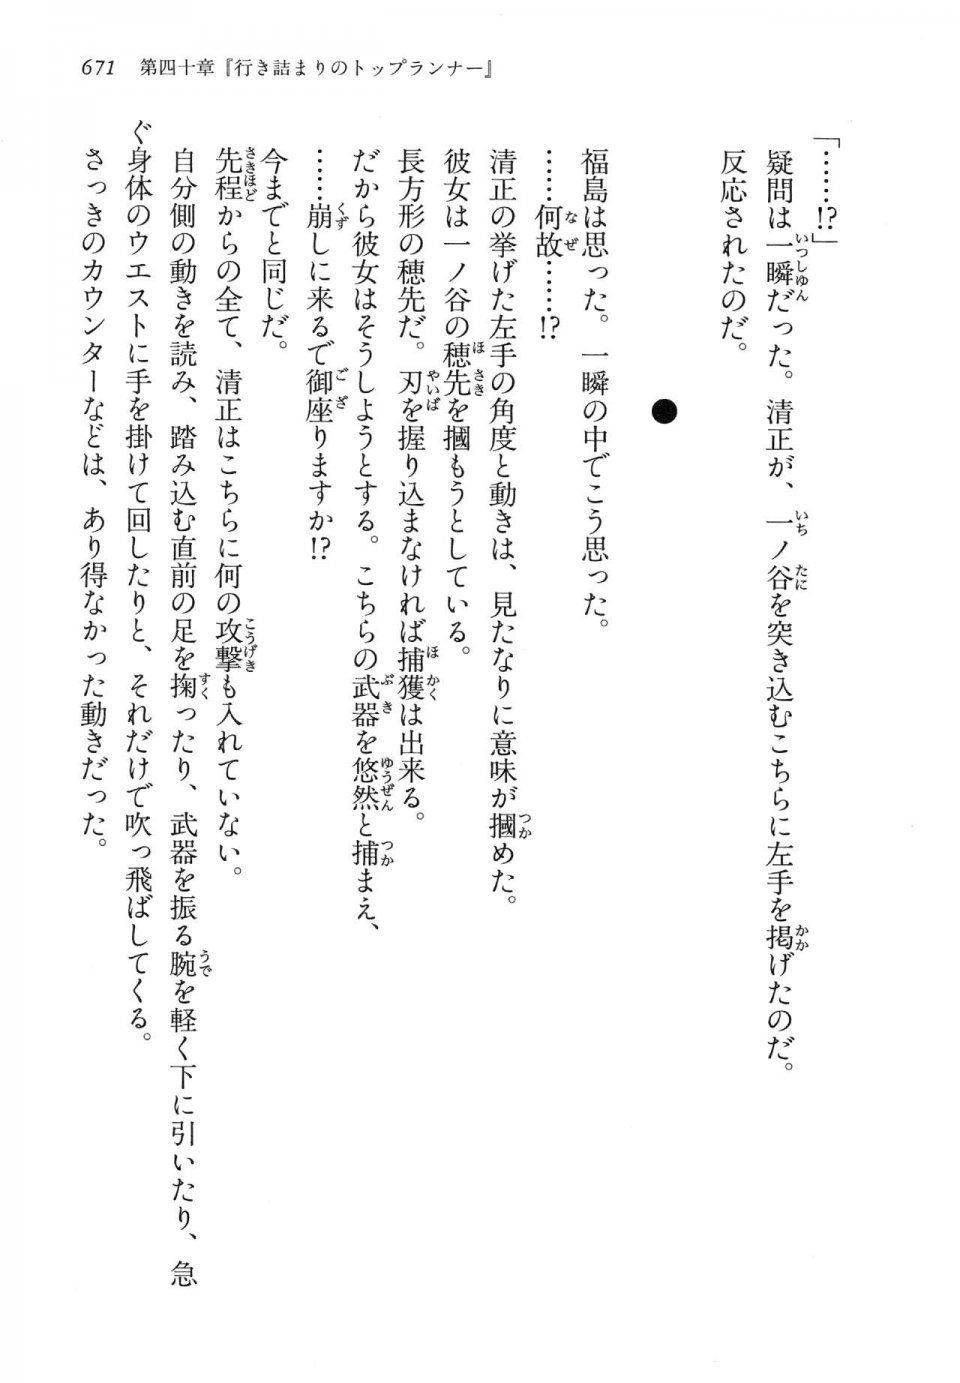 671　第四十章『行き詰まりのトップランナー』
「……!?」
疑問は一瞬だった。清正が、一ノ谷を突き込むこちらに左手を掲げたのだ。
反応されたのだ。
●
福島は思った。一瞬の中でこう思った。
……何故……!?
清正の挙げた左手の角度と動きは、見たなりに意味が摑めた。
彼女は一ノ谷の穂先を摑もうとしている。
長方形の穂先だ。刃を握り込まなければ捕獲は出来る。
だから彼女はそうしようとする。こちらの武器を悠然と捕まえ、
……崩しに来るで御座りますか!?
今までと同じだ。
先程からの全て、清正はこちらに何の攻撃も入れていない。
自分側の動きを読み、踏み込む直前の足を掬ったり、武器を振る腕を軽く下に引いたり、急
ぐ身体のウエストに手を掛けて回したりと、それだけで吹っ飛ばしてくる。
さっきのカウンターなどは、あり得なかった動きだった。